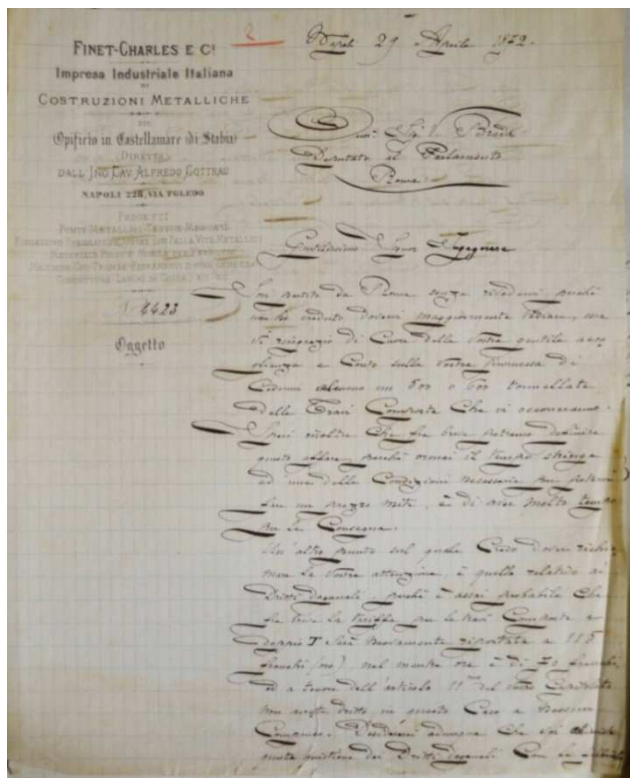 FINET-CHARLES E Cⁱ
Impresa Industriale Italiana
DI
COSTRUZIONI METALLICHE
Opificio in Castellamare (di Stabia)
DIRETTA
DALL'ING. CAV. ALFREDO COTTRAU
NAPOLI 228, VIA TOLEDO
PROGETTI
N. 4423
Oggetto
2
Napoli 29 Aprile 1872.
Deputato al Parlamento
Roma
Gentilissimo Signor Ingegnere
Son partito da Roma senza rivedervi, perché
non ho creduto dovervi maggiormente tediare, ma
vi ringrazio di cuore della vostra gentile acco
glienza e conto sulla vostra promessa di
cedermi almeno un 500 o 600 tonnellate
delle Travi Composte che vi occorreranno.
Spero inoltre che fra breve potremo definire
questo affare, perché ormai il tempo stringe
ed una delle Condizioni necessarie per potervi
fare un prezzo mite, è di aver molto tempo
per la Consegna.
Un altro punto sul quale Credo dover richia
mare la vostra attenzione, è quello relativo ai
Dritti doganali, perché è assai probabile che
fra breve la tariffa per le travi Composte a
doppio T sarà nuovamente riportata a 115
franchi nel mentre ora è di
ed a tenore dell'articolo 11 del vostro Capitolato
non avete dritto in questo Caso a nessun
Compenso. Desidererei adunque che
questa quistione dei Dritti doganali